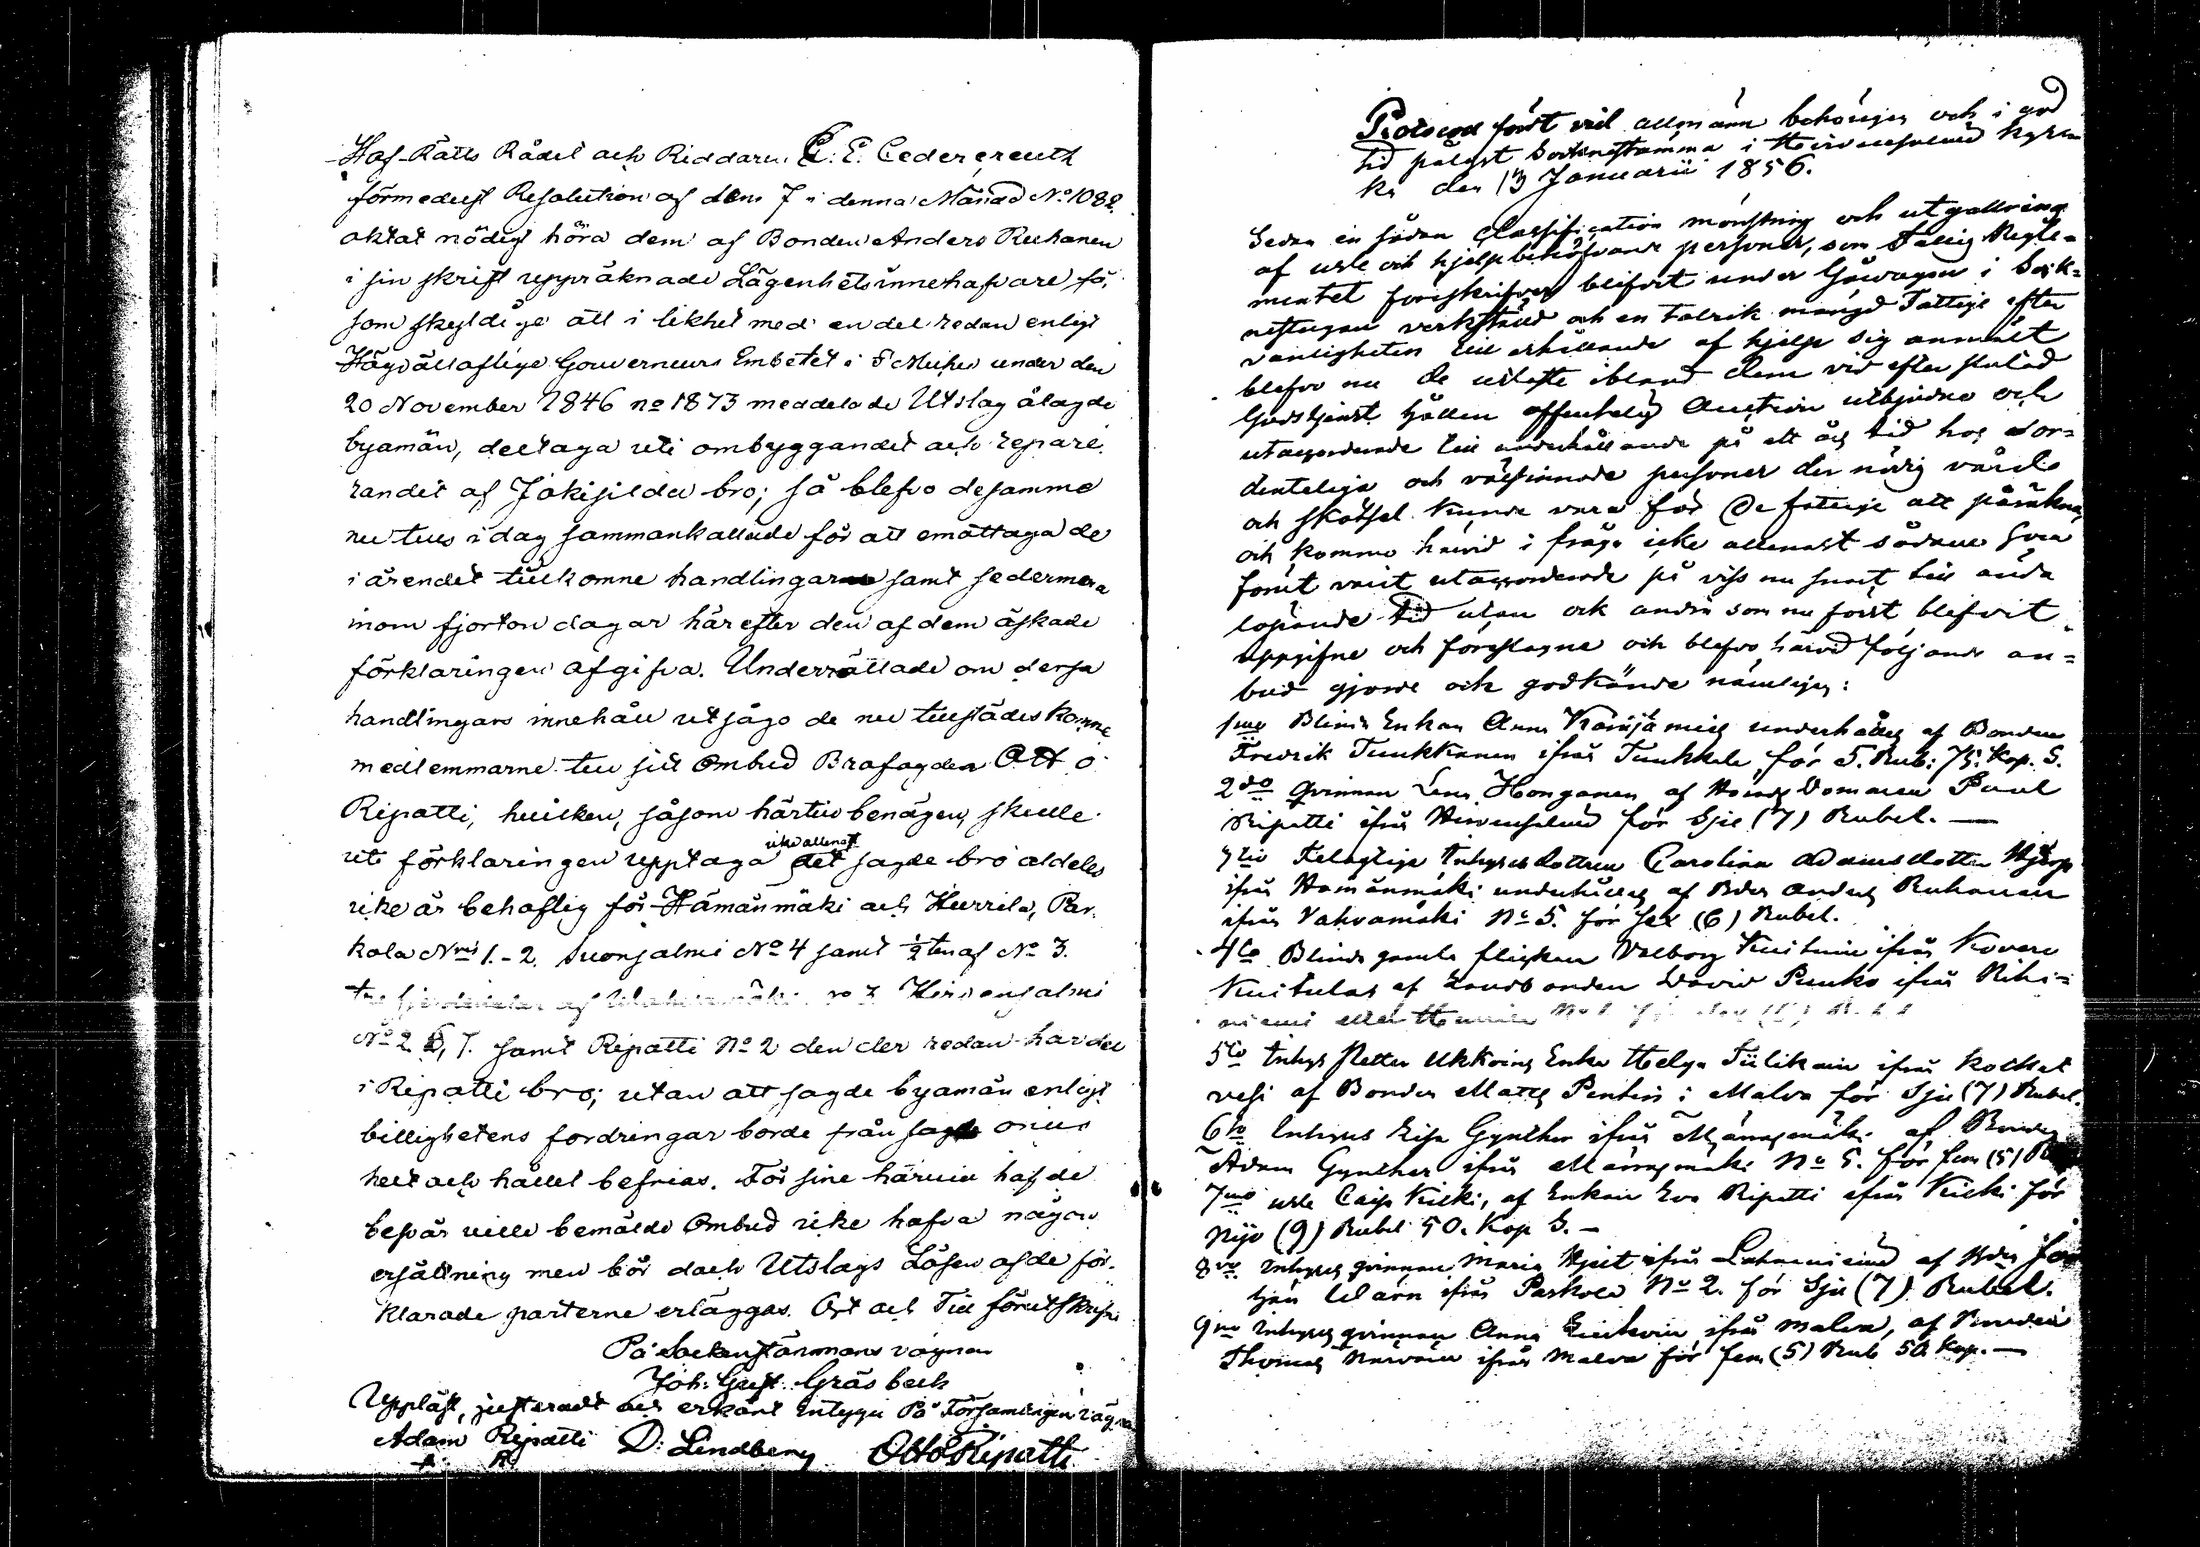 Hof-Rätts Rådet och Riddaren C. E. Cedercreutz
förmedelst Resolution af den 7 i denna Månad No 1082
aktat nödigt höra dem af Bonden Anders Ruhanen
i sin skrift uppräknade Lägenhetsinnehafvare så,
som skyldige att i likhet med en del redan enligt
Högvällaflige Gouverneurs Embetet i St Michel under den
20 November 1846 no 1873 meddelade Utslag ålagde
byamän, deltaga uti ombyggandet och repare,
randet af Jokisilda bro; så blefvo desamme
nu till i dag sammankallade för att emottaga de
i ärendet tillkomne handlingarne samt sedermera
inom fjorton dagar här efter den af dem äskade
förklaringen afgifva. Underrättade om dessa
handlingars innehåll utsågo de nu tillstädes komne
medlemmarne till sitt Ombud Brofogden Otto
Ripatti, hvilken, såsom härtill benägen, skulle
uti förklaringen upptaga icke allenast det sagde bro aldeles
icke är behöflig för Hämänmäki och Hurrila, Par,
kola Nris 1.-2. Suonsalmi No 4 samt ½ten af No 3.
No 3 Hirvensalmi
No 2, 7. samt Ripatti No 2 den der redan har del
i Ripatti bro; utan att sagde byamän enligt
billighetens fordringar borde från sagde onus
helt och hållet befrias. För sine härvid hafde
besvär ville bemälde Ombud icke hafva någon
ersättning men bör dock Utslags Lösen af de för,
klarade parterne erläggas. Ort och Tid förutskrifne
På Sockenstämmans vägnar
Joh: Gust. Gråsbeck
Uppläst, justeradt och erkänt intyga På Församlingens vägnar
Adam Ripatti D: Lindberg Otto Ripatti
Protocoll fördt vid allmänn behörigen och i god
tid pålyst Socknestämma i Hirvensalmi kyrka
den 13 Januarii 1856.
Sedan en sådan classification mönstring och utgallring
af usle och hjelpbehöfvande personer, som Fattig Regle=
mentet föreskrifver blifvit under Gåvogen i Sock=
nestugan verkstäld och en talrik mängd Fattige efter
vanligheten till erhållande af hjelp sig anmält
blefvo nu de uslaste ibland dem vid efter slutad
Gudstjenst hållen offentelig Auction utbjudne och
utackorderade till underhållande på ett års tid hos or=
denteliga och välsinnade personer der nödig vård
och skötsel kunde vara för de fattige att påräkna,
och kommo härvid i fråga icke allenast sådane som
förut varit utackorderade på viss nu snart till ända
löpande tid utan ock andra som nu först blifvit
uppgifne och föreslagne och blefvo härvid följande an=
bud gjorde och godkände nämligen:
1mo Blinda Enkan Anna underhålles af Bonden
Fredrik Tuukkanen ifrån Tuukkala för 5. Rub: 75. Kop. S.
2do Qvinnan Lena Honganen af Domaren Paul
Ripatti ifrån Hirvensalmi för Sju (7) Rubel. —
3tio Inhyses dottren Carolina Adamsdotter
ifrån Hämänmäki underhålles af Bden Anders Ruhanen
ifrån Vahvamäki No 5. för Sex (6) Rubel.
4to Blinda gamla flickan Valborg ifrån Kovero
Kuitulas af Landbonden David Punka ifrån
niemi
5to Enka Helga Tiilikain ifrån
vesi af Bonden Matts Pentin i Malva för Sju (7) Rubel.
6to Inhyses Lisa Gynther ifrån Männymäki af Bonden
Adam Gynther ifrån Männymäki No 5. för fem (5)
7mo usle Caisa Kilki, af Enkan Eva Ripatti ifrån Kilki för
Nijo (9) Rubel 50. Kop S. —
8vo Inhyses qvinnan Maria ifrån Lahnaniemi af
ifrån Parkola No 2. för Sju (7) Rubel.
9no Inhyses qvinnan Anna ifrån Malva, af Bonden
Thomas ifrån Malva för fem (5) Rub 50. Kop. —